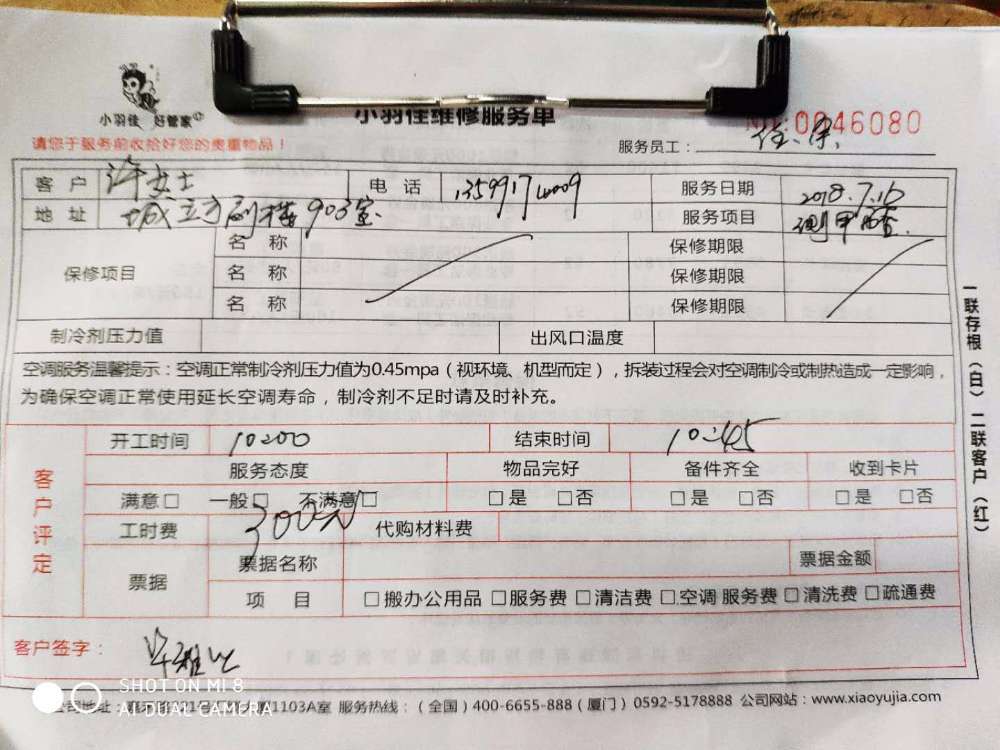 小羽佳 好管家
小羽佳维修服务单
0046080
请您于服务前收拾好您的贵重物品！
服务员工：
客户 许女士 电话 服务日期 2018.7.16
地址 903室 服务项目 测甲醛
保修项目 名称 保修期限
名称 保修期限
名称 保修期限
制冷剂压力值 出风口温度
空调服务温馨提示：空调正常制冷剂压力值为0.45mpa（视环境、机型而定），拆装过程会对空调制冷或制热造成一定影响，
为确保空调正常使用延长空调寿命，制冷剂不足时请及时补充。
客户评定
开工时间 10:00 结束时间 10:45
服务态度 物品完好 备件齐全 收到卡片
满意□ 一般□ 不满意□ □是 □否 □是 □否 □是 □否
工时费 300元 代购材料费
票据 票据名称 票据金额
项目 □搬办公用品 □服务费 □清洁费 □空调服务费 □清洗费 □疏通费
客户签字：
一联存根（白）二联客户（红）
SHOT ON MI 8
AI DUAL CAMERA
1103A室 服务热线：（全国）400-6655-888（厦门）0592-5178888 公司网站：www.xiaoyujia.com